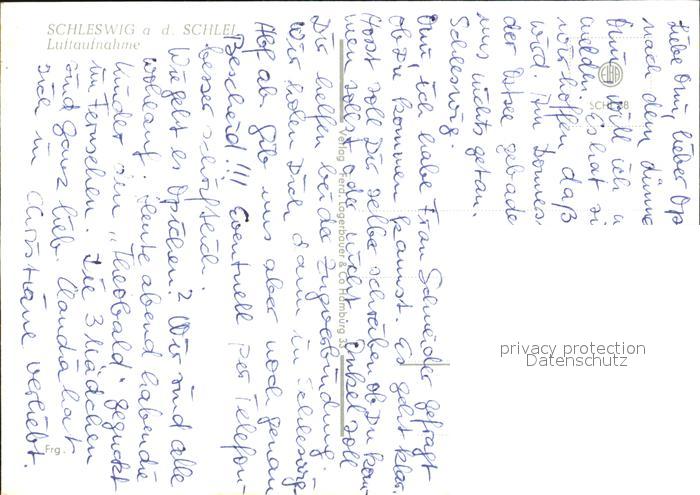 SCHLESWIG a d. SCHLEI
Luftaufnahme
Liebe Omi, lieber Op
nach dem
Omi will ich
melden. Es hat
wir hoffen daß
wird. Am Donners
der Ostsee gebade
uns nichts getan.
Schleswig.
Omi, ich habe Frau Schneider gefragt
ob Du kommen kannst. Es geht klar.
Horst soll Dir selbst schreiben ob Du kom-
men sollst oder nicht. Onkel soll
Dir helfen beide Zugverbindung.
Wir holen Dich dann in Schleswig
Abf ab. Gib uns aber noch genau
Bescheid!!! Eventuell per Telefon
besser schriftlich.
Wie geht es Opilchen? Wir sind alle
wohlauf. Heute abend haben die
Kinder den "Theobald" geguckt
im Fernsehen. Die 3 Mädchen
sind ganz lieb. Claudia hat
sich in Christiane verliebt.
Verlag Ferd. Lagerbauer & Co Hamburg 33
SCHL
Frg.
privacy protection
Datenschutz